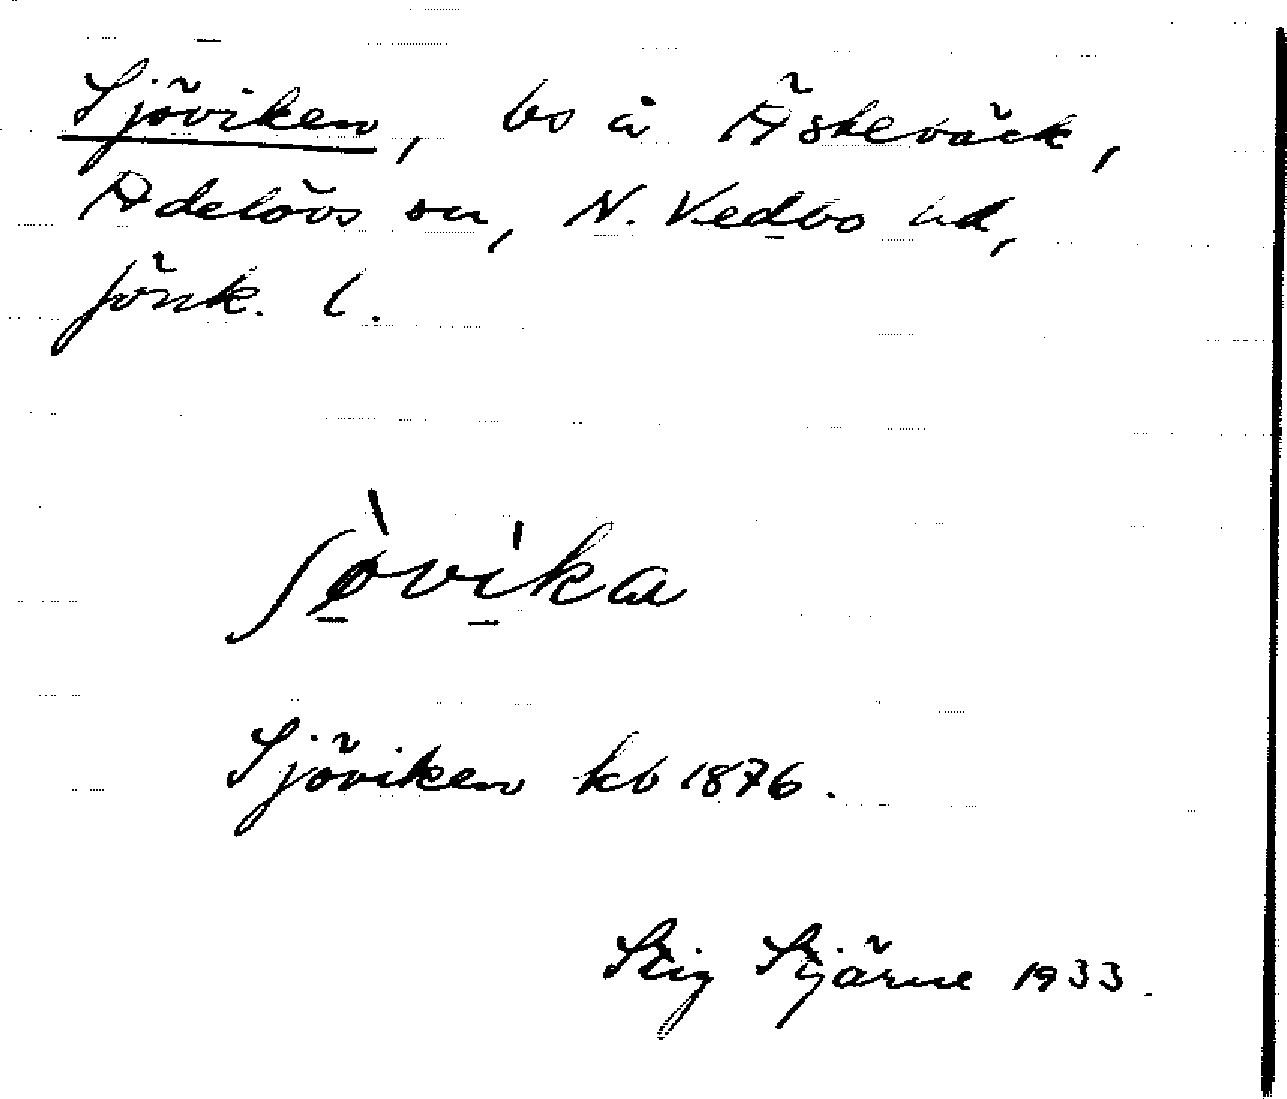 Sjöviken, bs å Äskebäck,
Adelövs sn, N. Vedbo hd,
Jönk. l.
ʃø̠̀vi̠ka
Sjöviken kb 1876.
Stig Stjärne 1933.